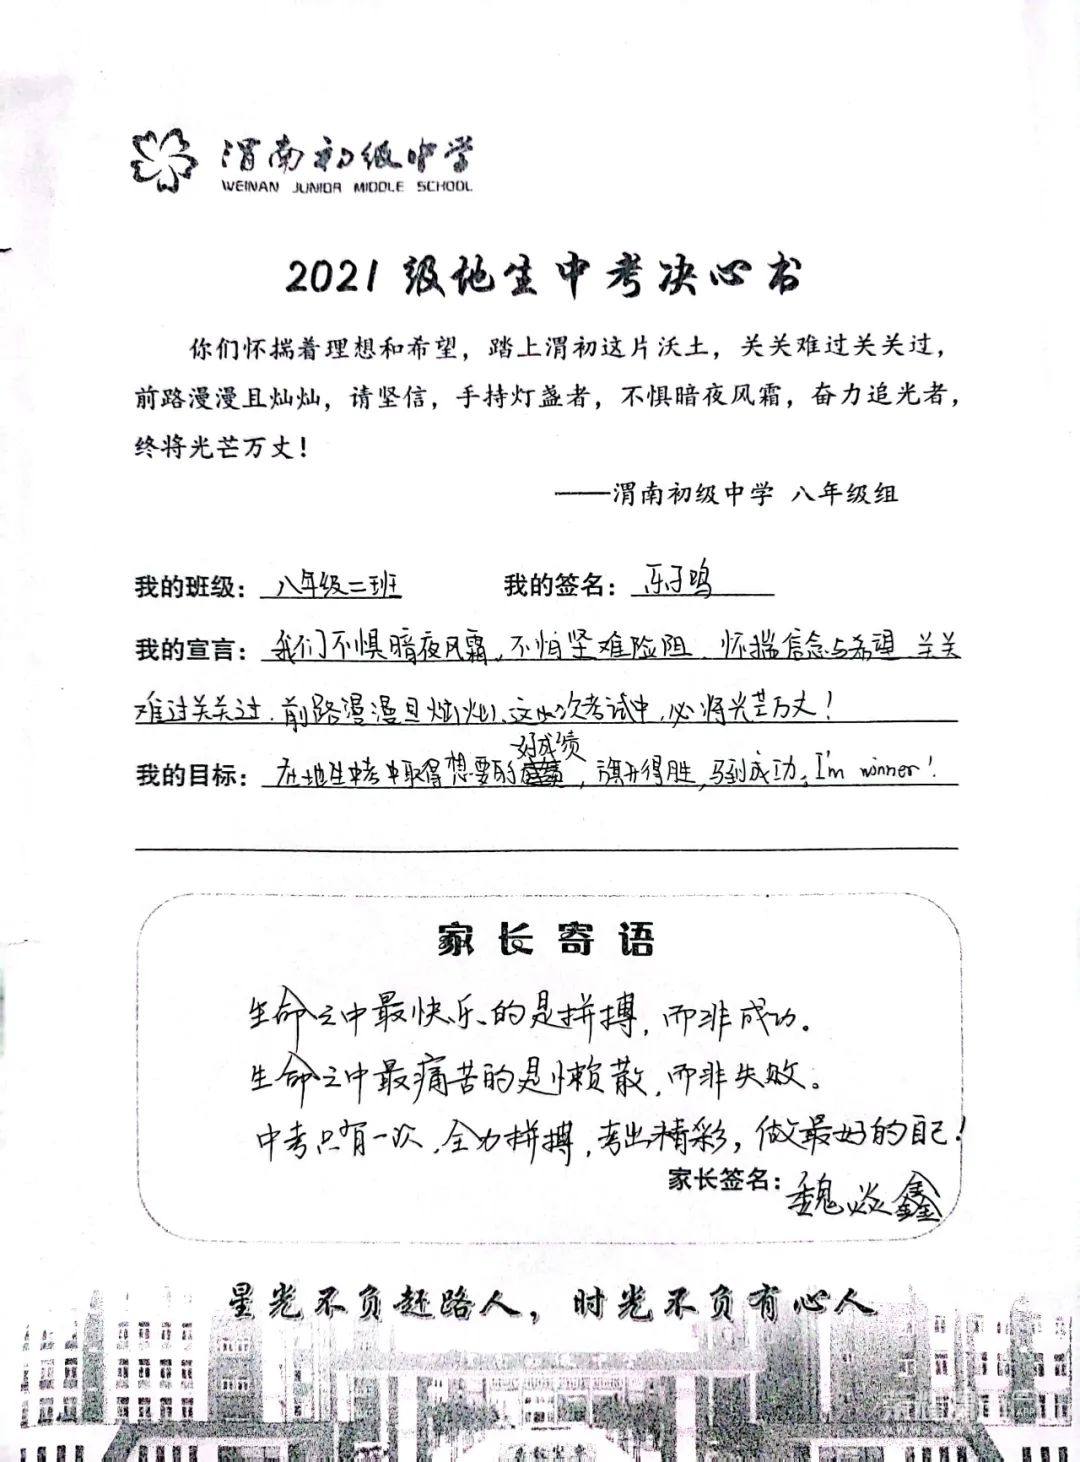 渭南初级中学
WEINAN JUNIOR MIDDLE SCHOOL
2021级地生中考决心书
你们怀揣着理想和希望，踏上渭初这片沃土，关关难过关关过，
前路漫漫且灿灿，请坚信，手持灯盏者，不惧暗夜风霜，奋力追光者，
终将光芒万丈！
——渭南初级中学 八年级组
我的班级：八年级二班 我的签名：乐子鸣
我的宣言：我们不惧暗夜风霜，不怕坚难险阻、怀揣信念与希望 关关
难过关关过，前路漫漫且灿灿、这次考试中，必将光芒万丈！
好成绩
我的目标：在地生中考中取得想要的，旗开得胜，马到成功，I'm winner！
家长寄语
生命之中最快乐的是拼搏，而非成功。
生命之中最痛苦的是懒散，而非失败。
中考只有一次，全力拼搏，考出精彩，做最好的自己！
家长签名：魏焱鑫
星光不负赶路人，时光不负有心人